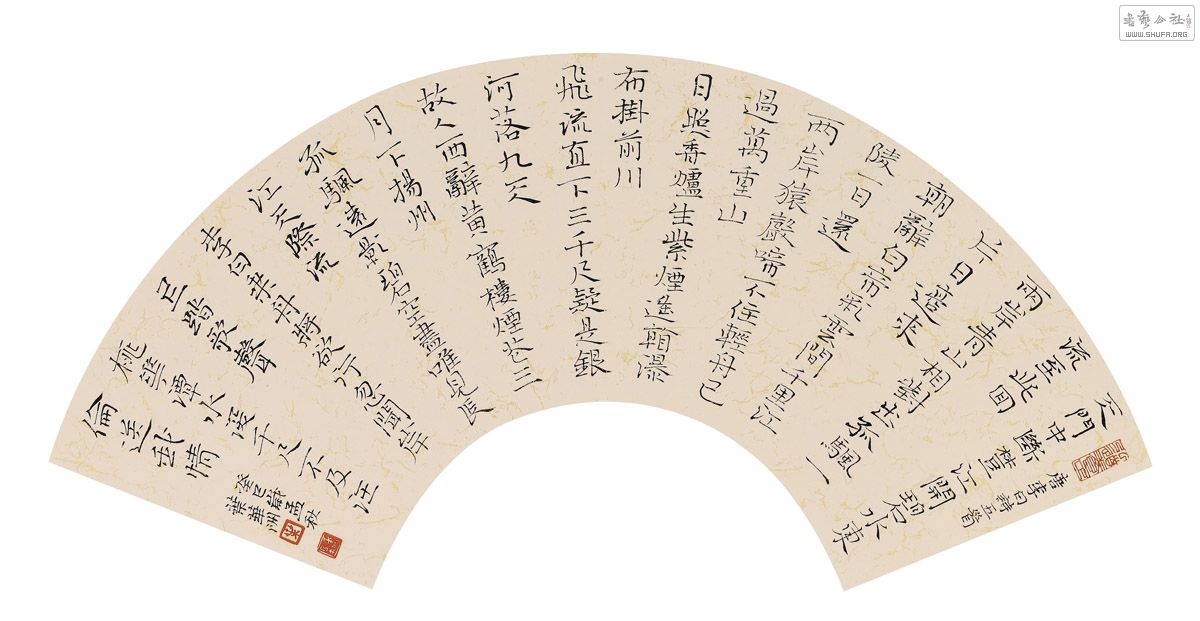 唐李白詩五首
天門中斷楚江開碧水東
流至此回
兩岸青山相對出孤颿一
片日邊來
朝辭白帝彩雲間千里江
陵一日還
兩岸猿聲啼不住輕舟已
過萬重山
日照香爐生紫煙遙看瀑
布掛前川
飛流直下三千尺疑是銀
河落九天
故人西辭黃鶴樓煙花三
月下揚州
孤颿遠影碧空盡唯見長
江天際流
李白乘舟將欲行忽聞岸
上踏歌聲
桃華潭水深千尺不及汪
倫送我情
癸巳歲孟秋
葉華洲
書藝公社
WWW.SHUFA.ORG